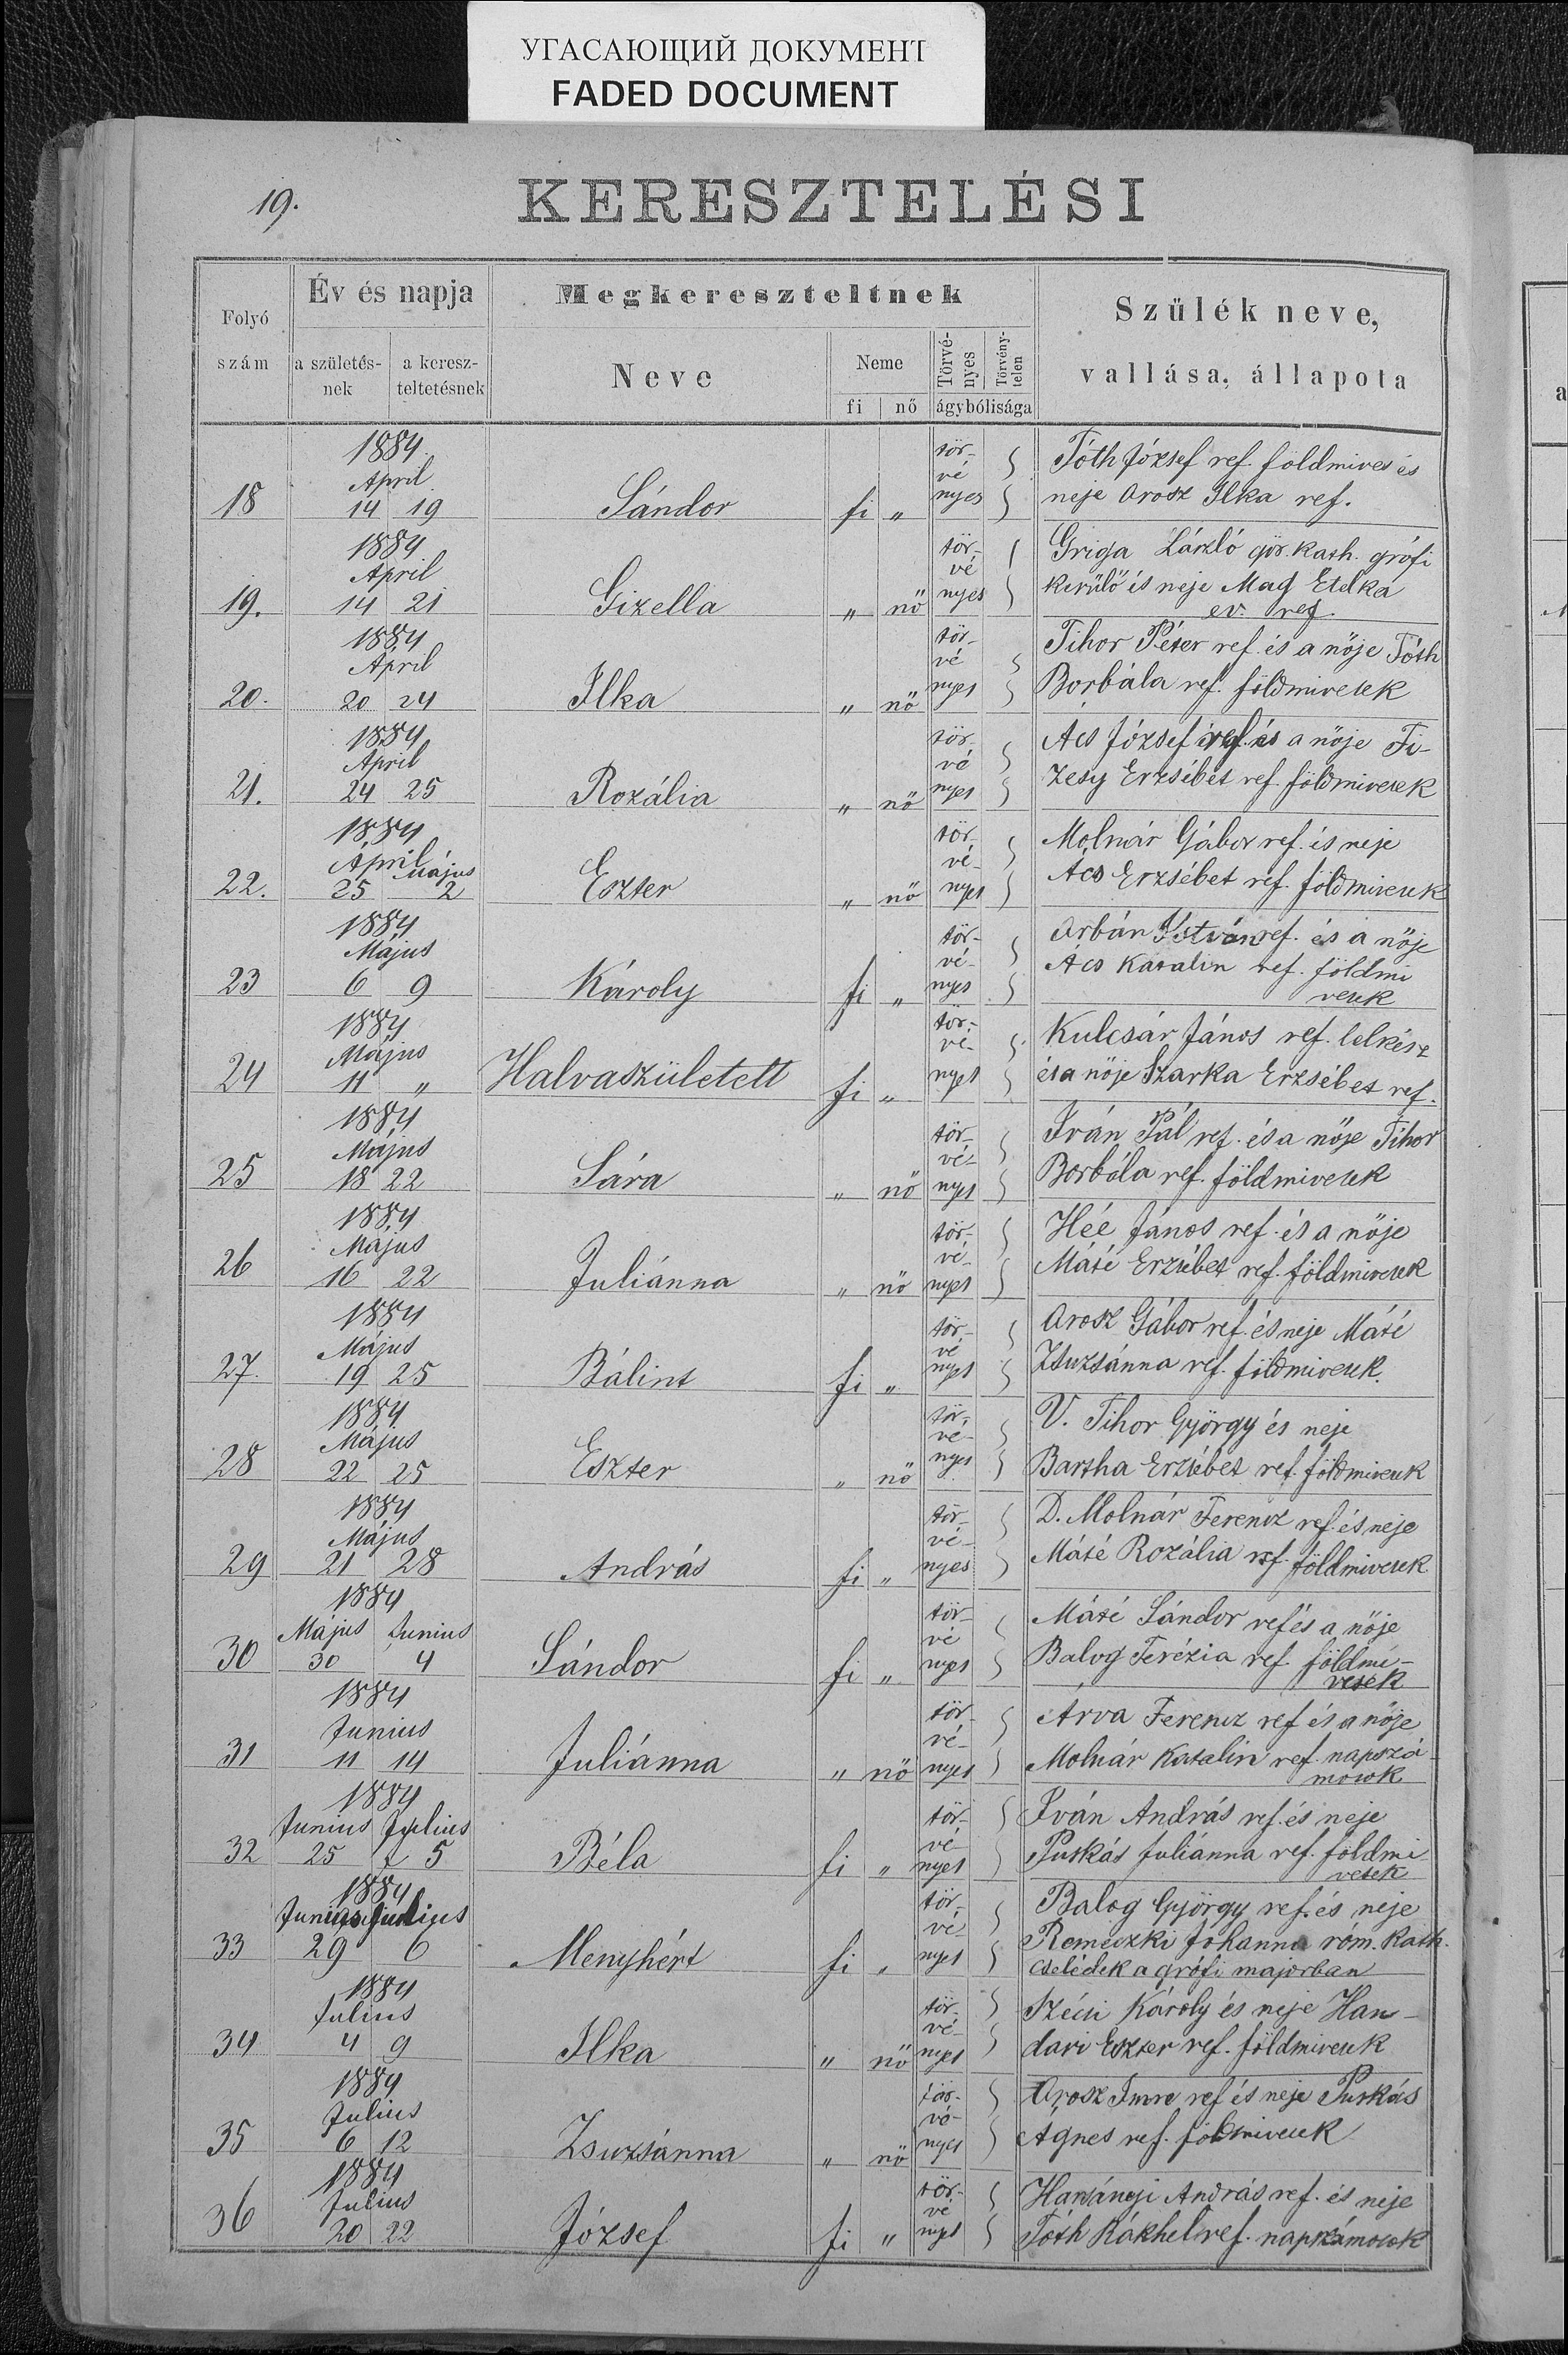 УГАСАЮЩИЙ ДОКУМЕНТ
FADED DOCUMENT
19.
KERESZTELÉSI
Folyó szám
Év és napja
a születés-nek
a keresz-teltetésnek
Megkereszteltnek
Neve
Neme
fi nő
Törvé-nyes
Törvény-telen
ágybólisága
Szülék neve,
vallása, állapota
1884.
April
18 14 19 Sándor fi „ tör-vé nyes
Tóth József ref. földmives és
neje Orosz Ilka ref.
1884
April
19. 14 21 Gizella „ nö tör-vé nyes
Griga László gör. kath. grófi
kerülö és neje Mag Etelka
ev. ref.
1884
April
20. 20 24 Ilka „ nö tör-vé nyes
Tihor Péter ref. és a nöje Tóth
Borbála ref. földmivesek
1884
April
21. 24 25 Rozália „ nö tör-vé nyes
Acs József ref. és a nöje Fi-
zesy Erzsébet ref. földmivesek
1884
April Május
22. 25 2 Eszter „ nö tör-vé-nyes
Molnár Gábor ref. és neje
Ács Erzsébet ref. földmivesek
1884
Május
23 6 9 Károly fi „ tör-vé-nyes
Orbán István ref. és a nöje
Ács Katalin ref. földmi
vesek
1884
Május
24 11 „ Halvaszületett fi „ tör-vé-nyes
Kulcsár János ref. lelkész
és a nöje Szarka Erzsébet ref.
1884
Május
25 18 22 Sára „ nö tör-vé-nyes
Iván Pál ref. és a nöje Tihor
Borbála ref. földmivesek
1884
Május
26 16 22 Juliánna „ nö tör-vé-nyes
Héé János ref. és a nöje
Máté Erzsébet ref. földmivesek
1884
Május
27. 19 25 Bálint fi „ tör-vé nyes
Orosz Gábor ref. és neje Máté
Zsuzsánna ref. földmivesek.
1884
Május
28 22 25 Eszter „ nö tör-vé-nyes
V. Tihor György és neje
Bartha Erzsébet ref. földmivesek
1884
Május
29 21 28 András fi „ tör-vé-nyes
D. Molnár Ferencz ref. és neje
Máté Rozália ref. földmivesek
1884
Május Junius
30 30 4 Sándor fi „ tör-vé nyes
Máté Sándor ref és a nöje
Balog Terézia ref. földmi-
vesek
1884
Junius
31 11 14 Juliánna „ nö tör-vé-nyes
Árva Ferencz ref és a nöje
Molnár Katalin ref. napszá-
mosok
1884
Junius Julius
32 25 5 Béla fi „ tör-vé-nyes
Iván András ref. és neje
Puskás Juliánna ref. földmi-
vesek
1884
Junius Julius
33 29 6 Menyhért fi „ tör-vé-nyes
Balog György ref. és neje
Remeczki Johanna róm. Kath.
cselédek a grófi majorban
1884
Julius
34 4 9 Ilka „ nö tör-vé-nyes
Szécsi Károly és neje Han-
dari Eszter ref. földmivesek
1884
Julius
35 6 12 Zsuzsánna „ nö tör-vé-nyes
Orosz Imre ref és neje Puskás
Agnes ref. földmivesek
1884
Julius
36 20 22 József fi „ tör-vé nyes
András ref. és neje
Tóth Rákhel ref. napszámosok